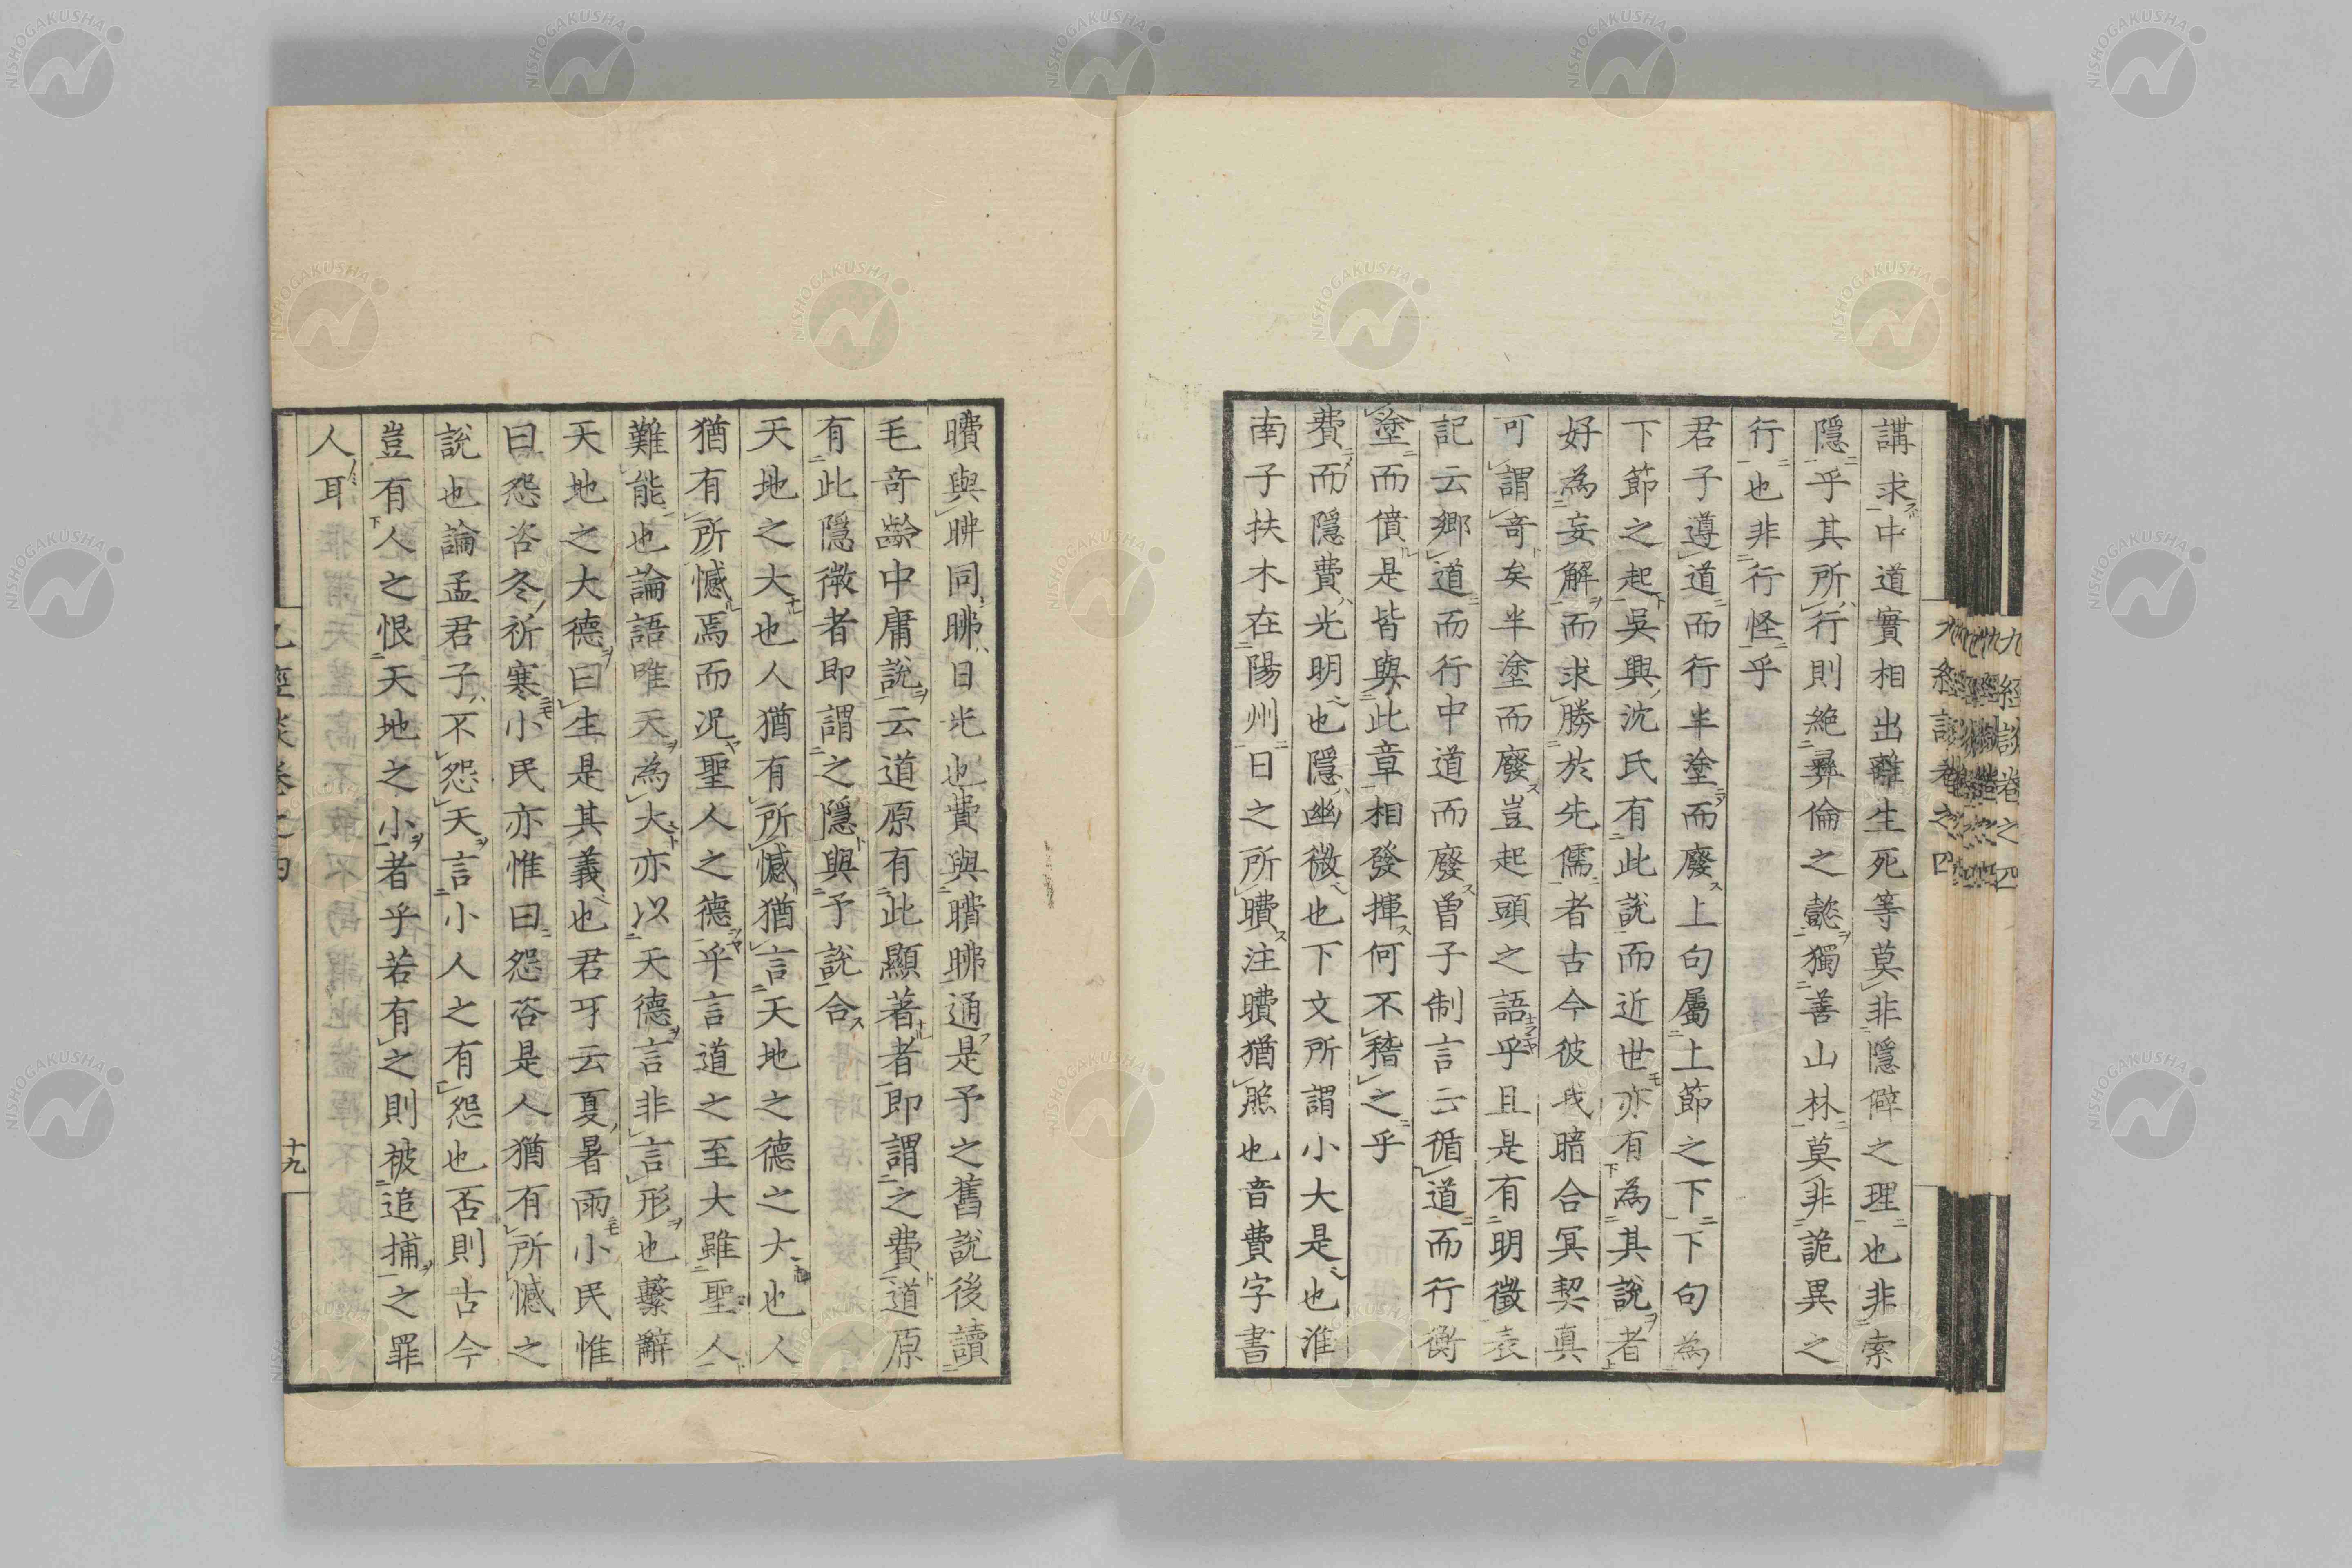 講求中道實相出離生死等莫非隱僻之理也非索
隱乎其所行則絶彛倫之懿獨善山林莫非詭異之
行也非行怪乎
君子遵道而行半塗而廢上句屬上節之下下句為
下節之起吳興沈氏有此說而近世亦有為其說者
好為妄解而求勝於先儒者古今彼我暗合冥契真
可謂竒矣半塗而廢豈起頭之語乎且是有明徵表
記云鄉道而行中道而廢曾子制言云循道而行衡
塗而僨是皆與此章相發揮何不稽之乎
費而隱費光明也隱幽微也下文所謂小大是也淮
南子扶木在陽州日之所曊注曊猶照也音費字書
曊與昲同昲日光也費與曊昲通是予之舊說後讀
毛竒齡中庸說云道原有此顯著者即謂之費道原
有此隱微者即謂之隱與予說合
天地之大也人猶有所憾猶言天地之德之大也人
猶有所憾焉而况聖人之德乎言道之至大雖聖人
難能也論語唯天為大亦以天德言非言形也繫辭
天地之大德曰生是其義也君牙云夏暑雨小民惟
曰怨咨冬祈寒小民亦惟曰怨咨是人猶有所憾之
說也論孟君子不怨天言小人之有怨也否則古今
豈有人之恨天地之小者乎若有之則被追捕之罪
人耳
九經談卷之四
十九